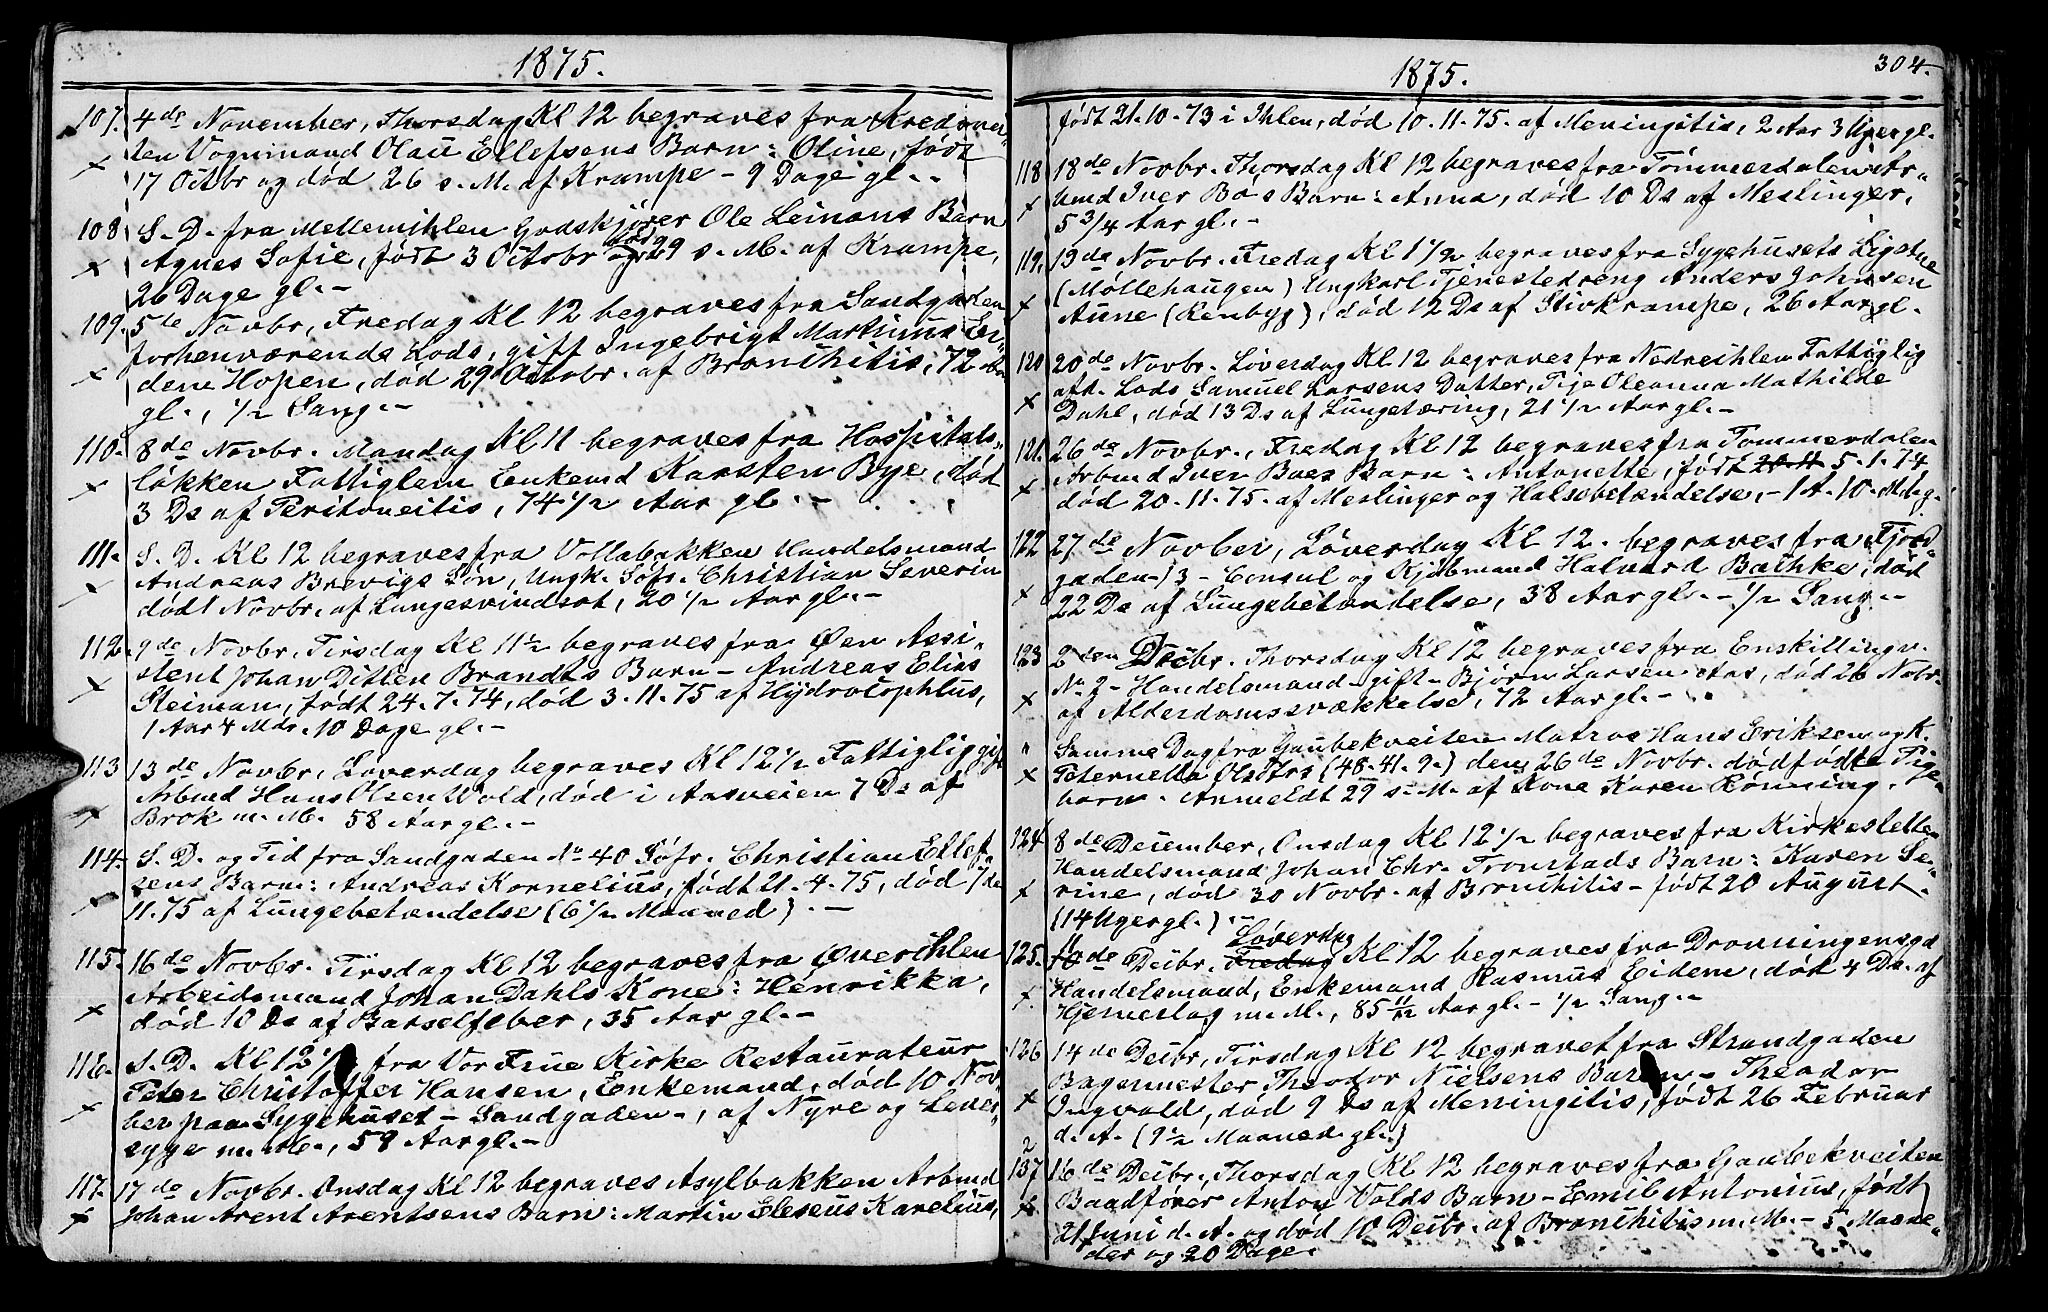 1875.
107. 4de November, Thorsdag Kl 12 begraves fra
ten Vognmand Olaü Ellefsens Barn: Oline, født
17 Octbr og død 26 s. M. af Krampe – 9 Dage gl..
108 S. D. fra Mellemihlen Godskjører Ole Leinans Barn
Agnes Sofie, født 3 Octobr død 29 s. M. af Krampe,
26 Dage gl.–
109. 5te Novbr, Fredag Kl 12 begraves fra Sandgaden
forhenværende Lods, gift Ingebrigt Martinus
dene Hopen, død 29 Octobr. af Bronchitis, 72 Aar
gl., 1/2 Sang.–
110. 8de Novbr. Mandag Kl 11 begraves fra Hospitals-
løkken Fattiglem Enkemd Karsten Bye, død
3 Ds af Peritoneitis, 74 1/2 Aar gl.–
111. S. D. Kl 12 begraves fra Vollabakken Handelsmand
Andreas Brevigs Søn, Ungk. Søfr. Christian Severin
død 1 Novbr. af Lungesvindsot, 20 1/2 Aar gl.–
112. 9de Novbr, Tirsdag Kl 11 1/2 begraves fra Øen Assi-
stent Johan Ditlev Brandts Barn – Andreas Elias
Steiman, født 24.7.74, død 3.11.75 af Hydrocephlus,
1 Aar 4 Mdr. 10 Dage gl.–
113 13de Novbr, Løverdag begraves Kl 12 1/2 Fattiglig gift
Arbmd Hans Olsen Wold, død i Aasveien 7 Ds af
Brok m. M. 58 Aar gl.–
114. S. D. og Tid fra Sandgaden No 40 Søfr. Christian Ellef-
sens Barn: Andreas Kornelius, født 21.4.75, død 7de
11.75 af Lungebetændelse (6 1/2 Maaned).–
115. 16de Novbr. Tirsdag Kl 12 begraves fra Øvreihlen
Arbeidsmand Johan Dahls Kone: Henrikka,
død 10 Ds af Barselfeber, 35 Aar gl.–
116. S. D. Kl 12 1/2 fra Vor Frue Kirke Restaurateur
Peter Christoffer Hansen, Enkemand, død 10 Nov.
ber paa Sygehuset – Sandgaden –, af Nyre og Lever
syge m. M., 58 Aar gl.–
117. 17de Novbr. Onsdag Kl 12 begraves Asylbakken Arbmd
Johan Arent Arentsens Barn: Martin Eleseus Karelius,
1875.
304.
født 21.10.73 i Ihlen, død 10.11.75. af Meningitis, 2 Aar 3 Uger gl.
118 18de Novbr. Thorsdag Kl 12 begraves fra Tømmerdalen Ar-
bmd Iver Boes Barn: Anna, død 10 Ds af Meslinger,
5 3/4 Aar gl.–
119. 19de Novbr. Fredag Kl 1 1/2 begraves fra Sygehusets Ligstue
(Møllehaugen) Ungkarl Tjenestedreng Anders Johnsen
Aune (Renbyg), død 12 Ds af Stivkrampe, 26 Aar gl.
120 20de Novbr. Løverdag Kl 12 begraves fra Nedreihlen Fattiglig
afd. Lods Samuel Larsens Datter, Pige Oleanna Mathilde
Dahl, død 13 Ds af Lungetæring, 21 1/2 Aar gl.–
121. 26de Novbr., Fredag Kl 12 begraves fra Tømmerdalen
Arbmd Iver Boes Barn: Antonette, født 20.11 5.1.74,
død 20.11.75. af Meslinger og Halsbetændelse, – 1 A. 10. Md. g.
122 27de Novber, Løverdag Kl 12. begraves fra Fjord-
gaden – 3 – Consul og Kjøbmand Halvard Bathke, død
22 Ds af Lungebetændelse, 38 Aar gl.– 1/2 Sang.–
123 2den Decbr. Thorsdag Kl 12 begraves fra Enskillingv.
No 7 – Handelsmand – gift – Bjørn Larsen Aas, død 26 Nobr.
af Alderdomssvækkelse, 72 Aar gl.–
" Samme Dag fra Gaubekveiten Matros Hans Eriksen og K.
Peternella Olsdtrs (48.41.9.) den 26de Novbr. dødfødte Pige-
barn. Anmeldt 29 s. M. af Kone Karen Rønning.
124 8de December, Onsdag Kl 12 1/2 begraves fra Kirkesletten
Handelsmand Johan Chr. Tronstads Barn: Karen Se-
rine, død 30 Novbr. af Bronchitis – født 20 August.
(14 Uger gl.).–
125. 11de Decbr. Fredag Løverdag Kl 12 begraves fra Dronningensgd
Handelsmand, Enkemand Rasmus Eidem, død 4 Ds. af
Hjerneslag m. M., 85 11/12 Aar gl.– 1/2 Sang.–
126 14de Decbr, Tirsdag Kl 12 begravet fra Strandgaden
Bagermester Theodor Nielsens Barn – Theodor
Ingvald, død 9 Ds af Meningitis, født 26 Februar
d. A. (9 1/2 Maaned gl.)
2
137 16de Decbr, Thorsdag Kl 12 begraves fra Gaubekveiten
Baadfører Anton Volds Barn – Emil Antonius, født
21 Juni d. A. og død 10 Decbr. af Bronchitis m. M. – 5 Maane-
der og 20 Dage.